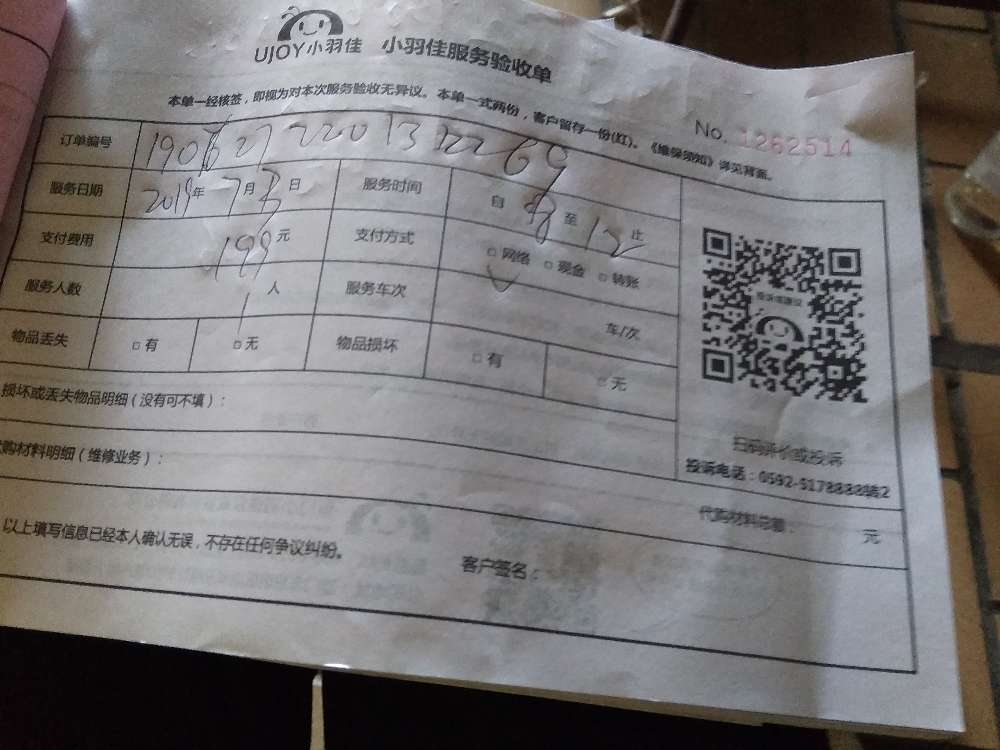 UJOY小羽佳 小羽佳服务验收单
本单一经核签，即视为对本次服务验收无异议。本单一式两份，客户留存一份(红)。《维保须知》详见背面。
No. 1262514
订单编号 190627220132269
服务日期 2019年 7月 日 服务时间 自 至 12 止
支付费用 199元 支付方式 □ 网络 □ 现金 □ 转账
服务人数 1 人 服务车次 车/次
物品丢失 □ 有 □ 无 物品损坏 □ 有 □ 无
损坏或丢失物品明细（没有可不填）：
购材料明细（维修业务）：
投诉或建议
扫码评价或投诉
投诉电话：0592-5178888转2
代购材料总额： 元
以上填写信息已经本人确认无误，不存在任何争议纠纷。
客户签名：